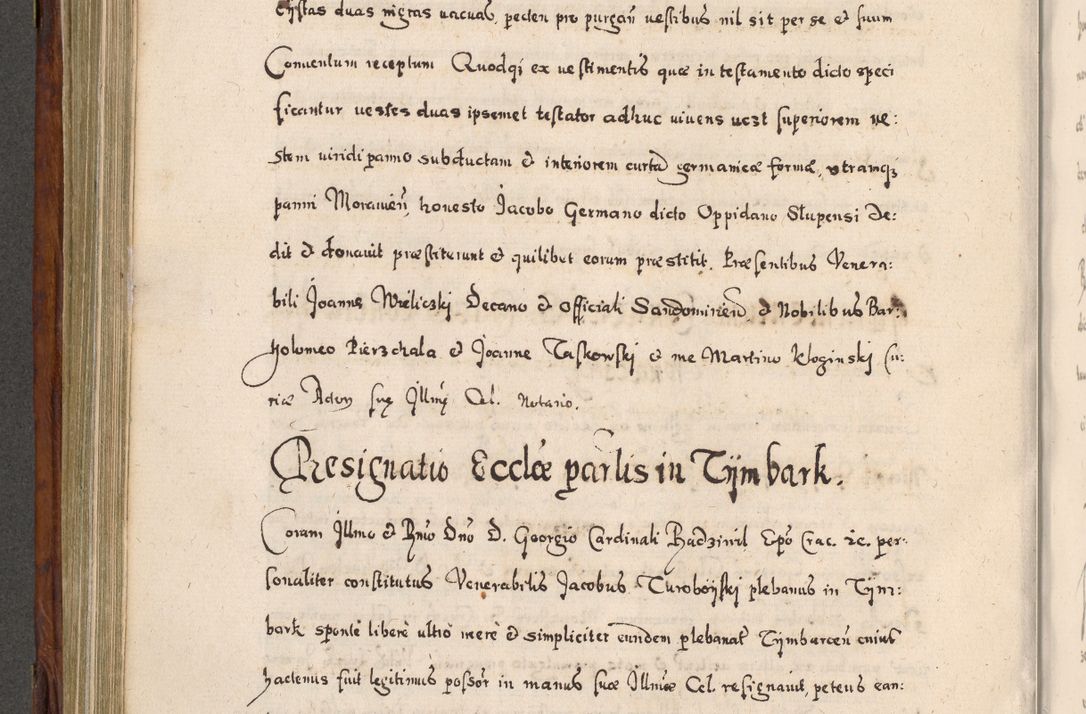 cistas duas nigras vacuas, pecten pro purgañ vestibus nil sit per se et suum
Conventum receptum Quodqȝ ex vestimentis quæ in testamento dicto speci
ficantur vestes duas ipsemet testator adhuc vivens vczt superiorem ve:
stem viridi panno subductam et interiorem curtã germanicæ formæ, vtramqȝ
panni Moravieñ, honesto Jacobo Germano dicto Oppidano Slupensi de:
dit et donavit præstiterunt et quilibet eorum præstitit. Præsentibus Venera:
bili Joanne Wieliczki Decano et Officiali Sandomirieñ, et Nobilibus Bar:
tolomeo Pierzchala et Joanne Taskowski et me Martino Kloginski Cu:
riæ Actor suę Illmę Cel. Notario.
Resignatio Eccłæ parłis in Tijmbark.
Coram Illmo et Rmo Dno D. Georgio Cardinali Radziwil Epo Crac. &c. per:
sonaliter constitutus Venerabilis Jacobus Turoboijski plebanus in Tijm:
bark sponte libere ultro mere et simpliciter eundem plebanat Tijmbarceñ cuius
hactenus fuit legitimus possor in manus suæ Illmæ Cel. resignavit, petens ean: